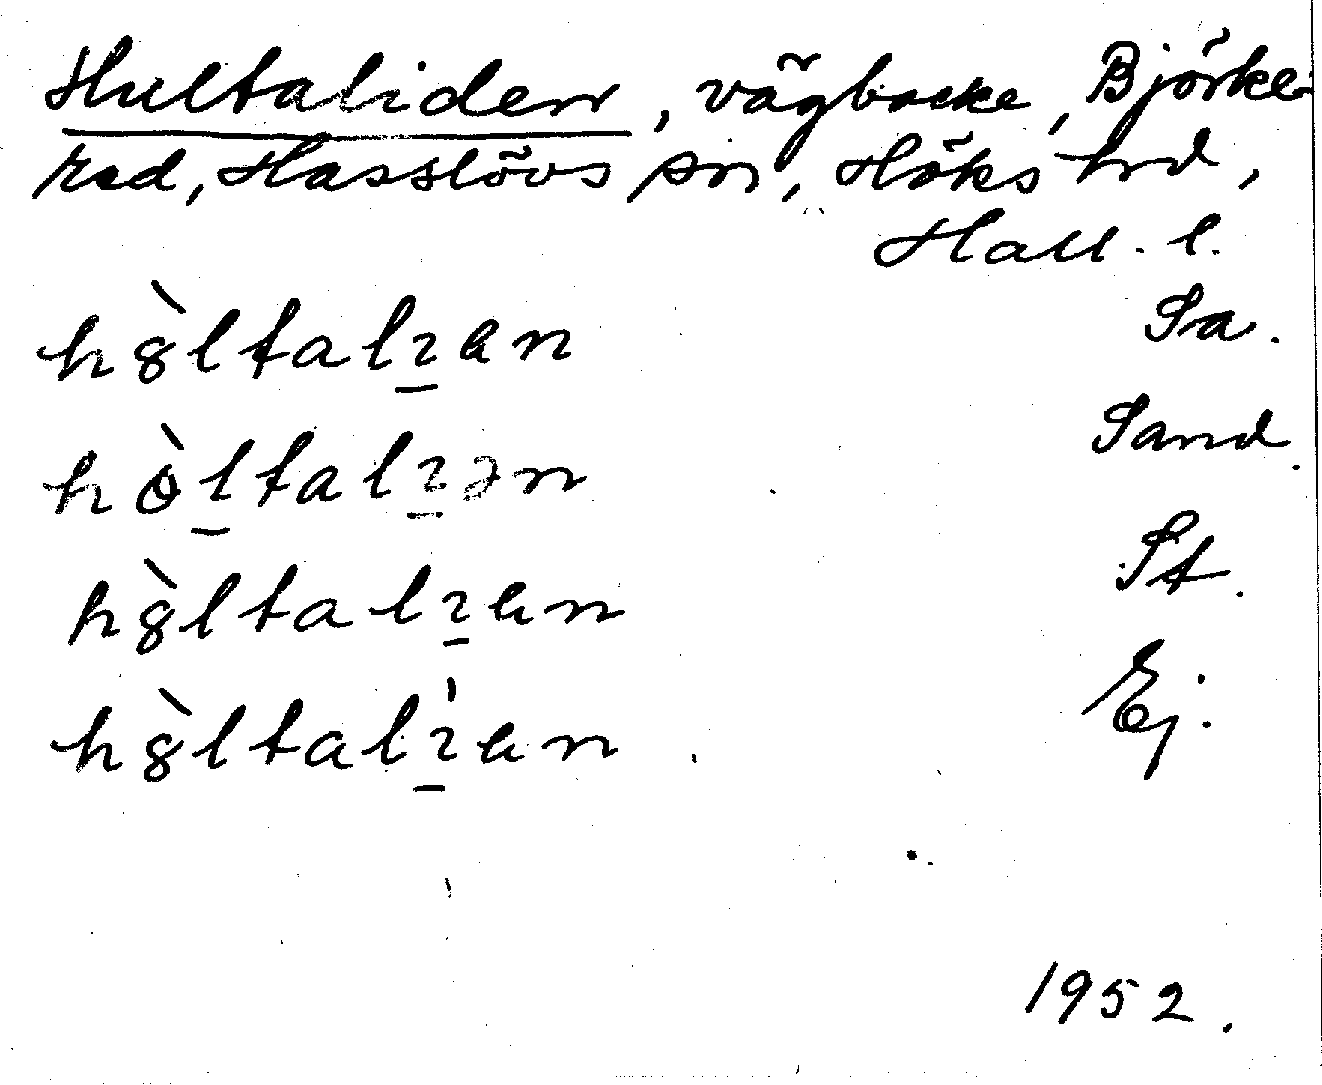 Hultaliden, vägbacke, Björke-
red, Hasslövs sn, Höks hrd,
Hall. l.
hὸltalı̱ən Sa.
hòḻtalı̱ən Sand.
hὸltalı̱ən St.
hὸltalı̱́ən Ej.
1952.